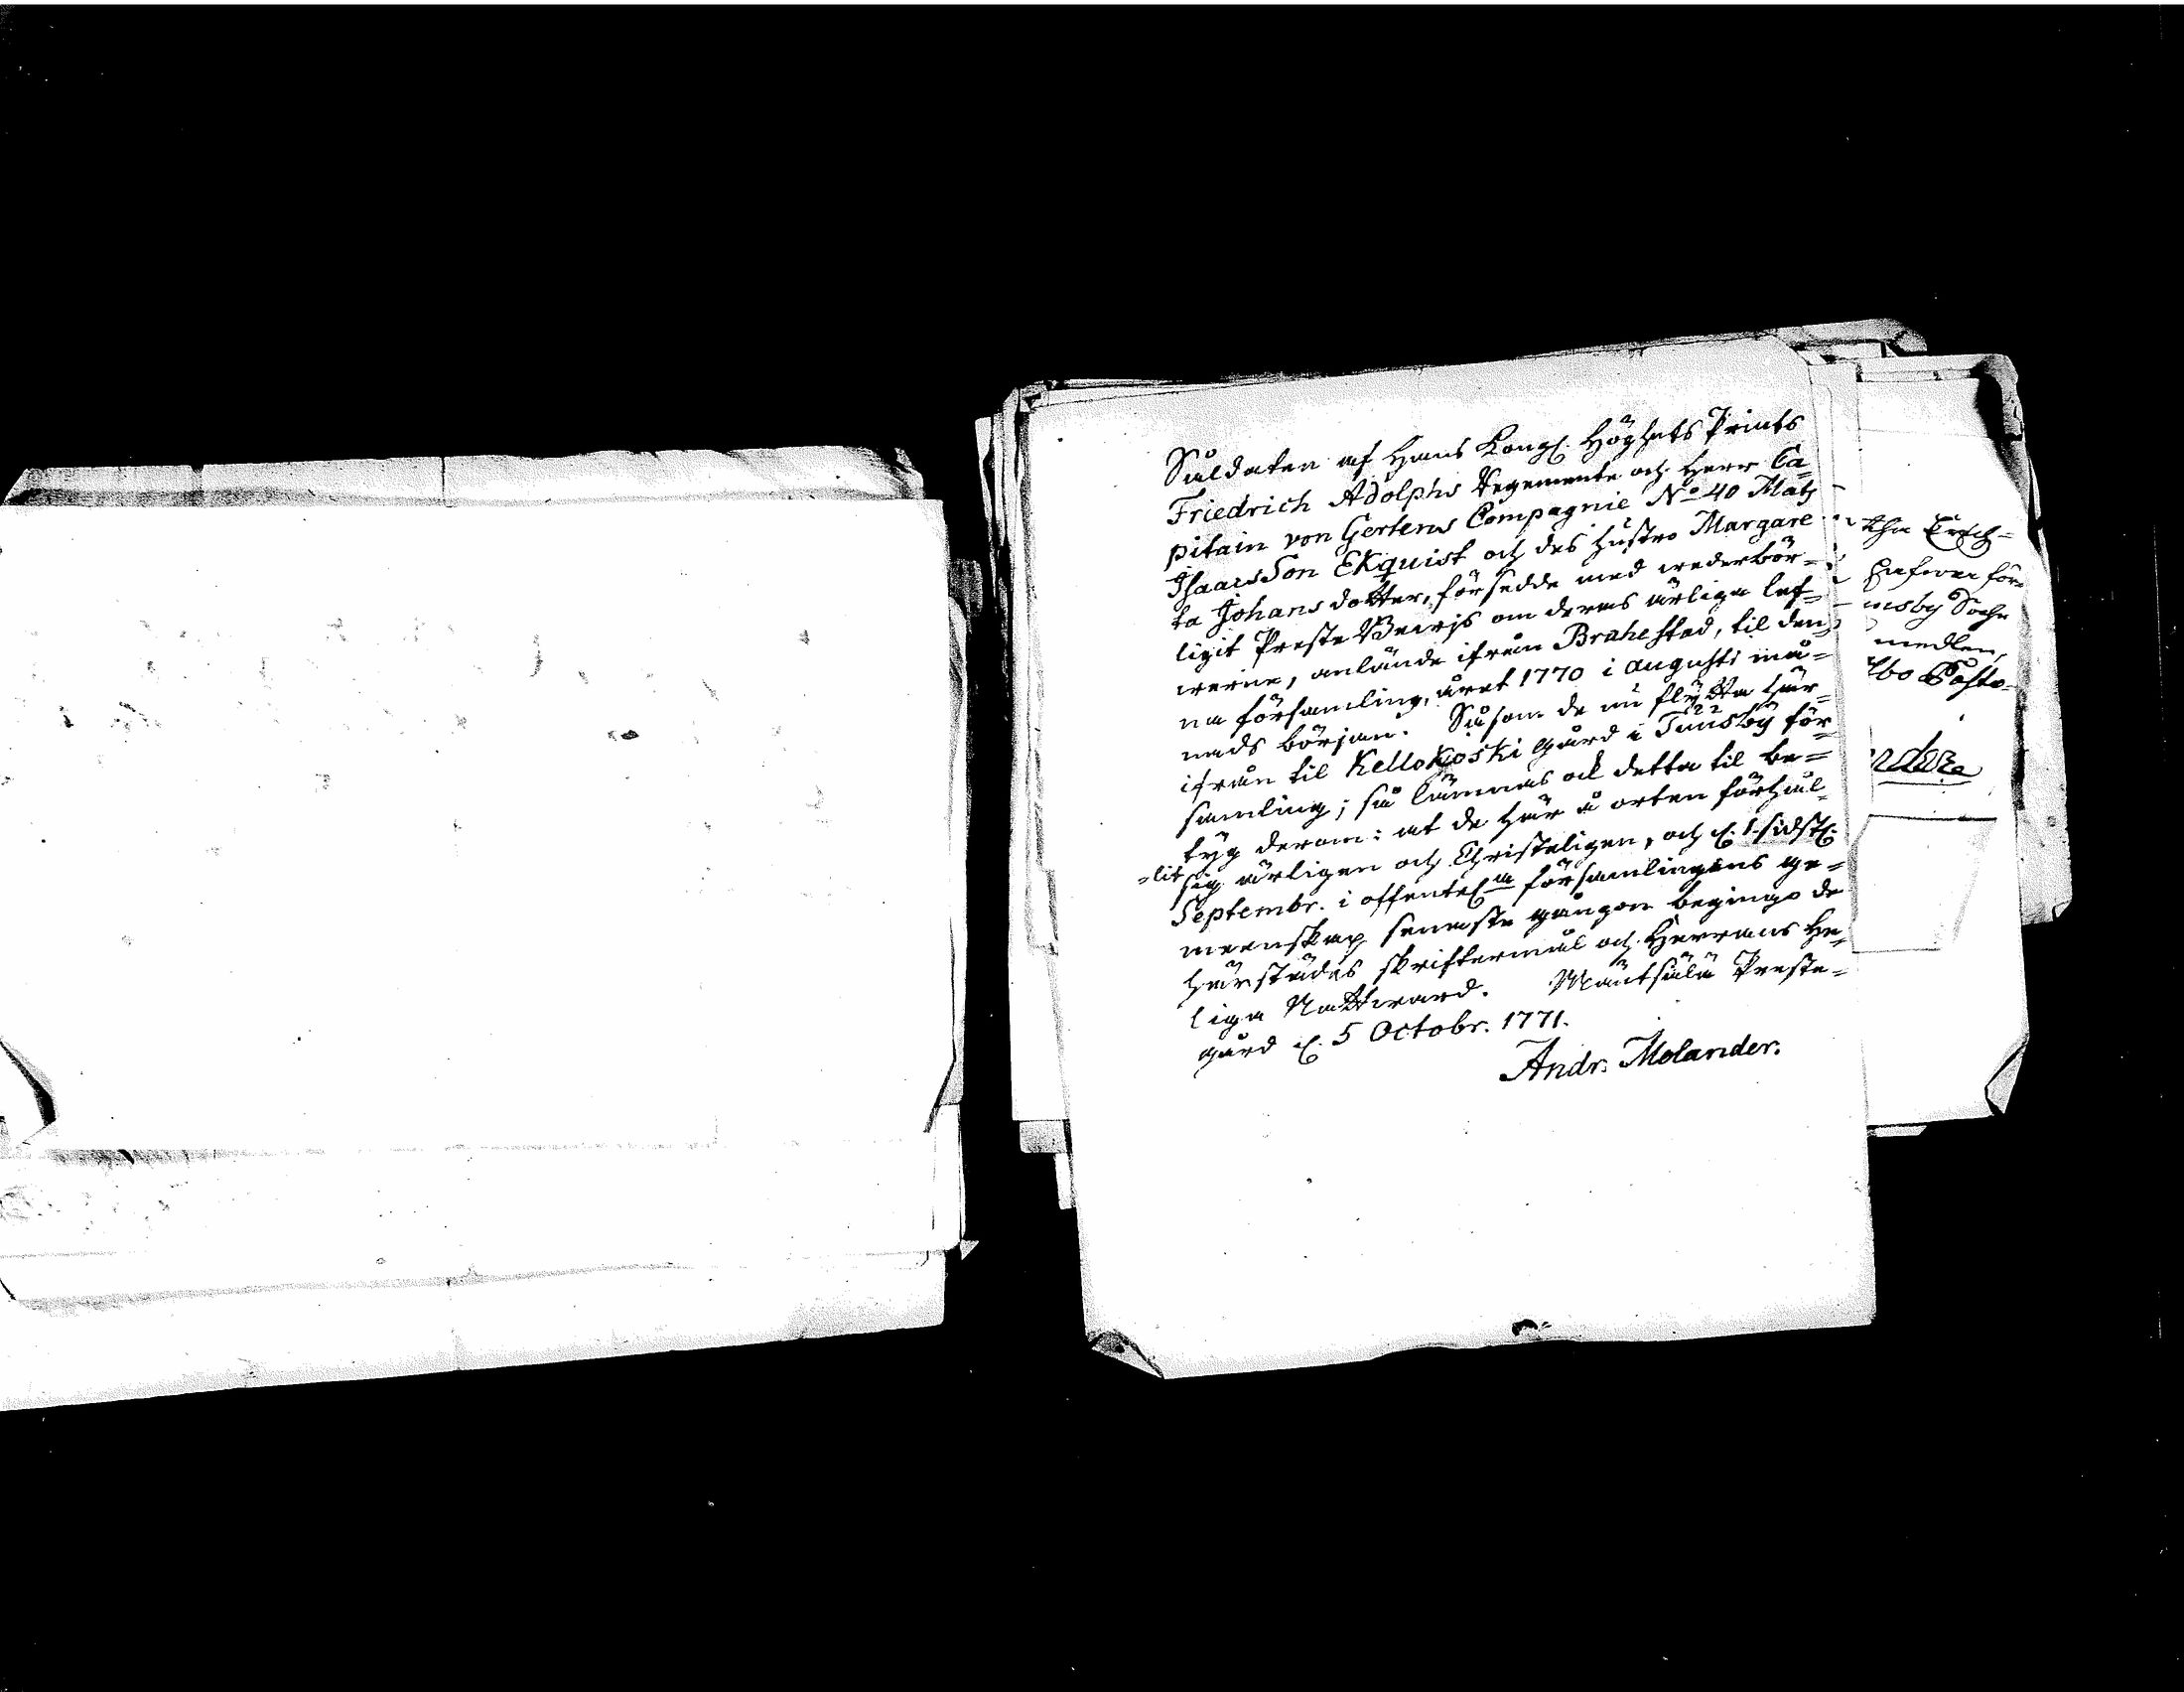 Såldaten af Hans Kongl. Höghets Prints
Friedrich Adolphs Regemente och Herr Ca=
pitain von Gertens Compagnie No 40 Mats
Isaacs Son Ekquist och des hustro Margare
ta Johans dotter, försedde med wederbör=
ligit Preste Bewis om deras ärliga lef=
werne, anlände ifrån Brahestad, til den=
na församling, året 1770 i augusti må=
nads början. Såsom de nu flytta här=
ifrån til Kellokoski gård i Tuusby för=
samling; så lämnas ock detta til be=
tyg derom: at de här å orten förhål=
=lit sig ärligen och Christeligen, och d. 1 sidstl.
Septembr. i offentel.a församlingens ge=
meenskap senaste gången begingo de
härstädes skriftermål och Herrans He=
liga Nattward. Mäntsälä Preste=
gård d. 5 Octobr. 1771.
Andr. Molander.
insby Sochn
medlen,